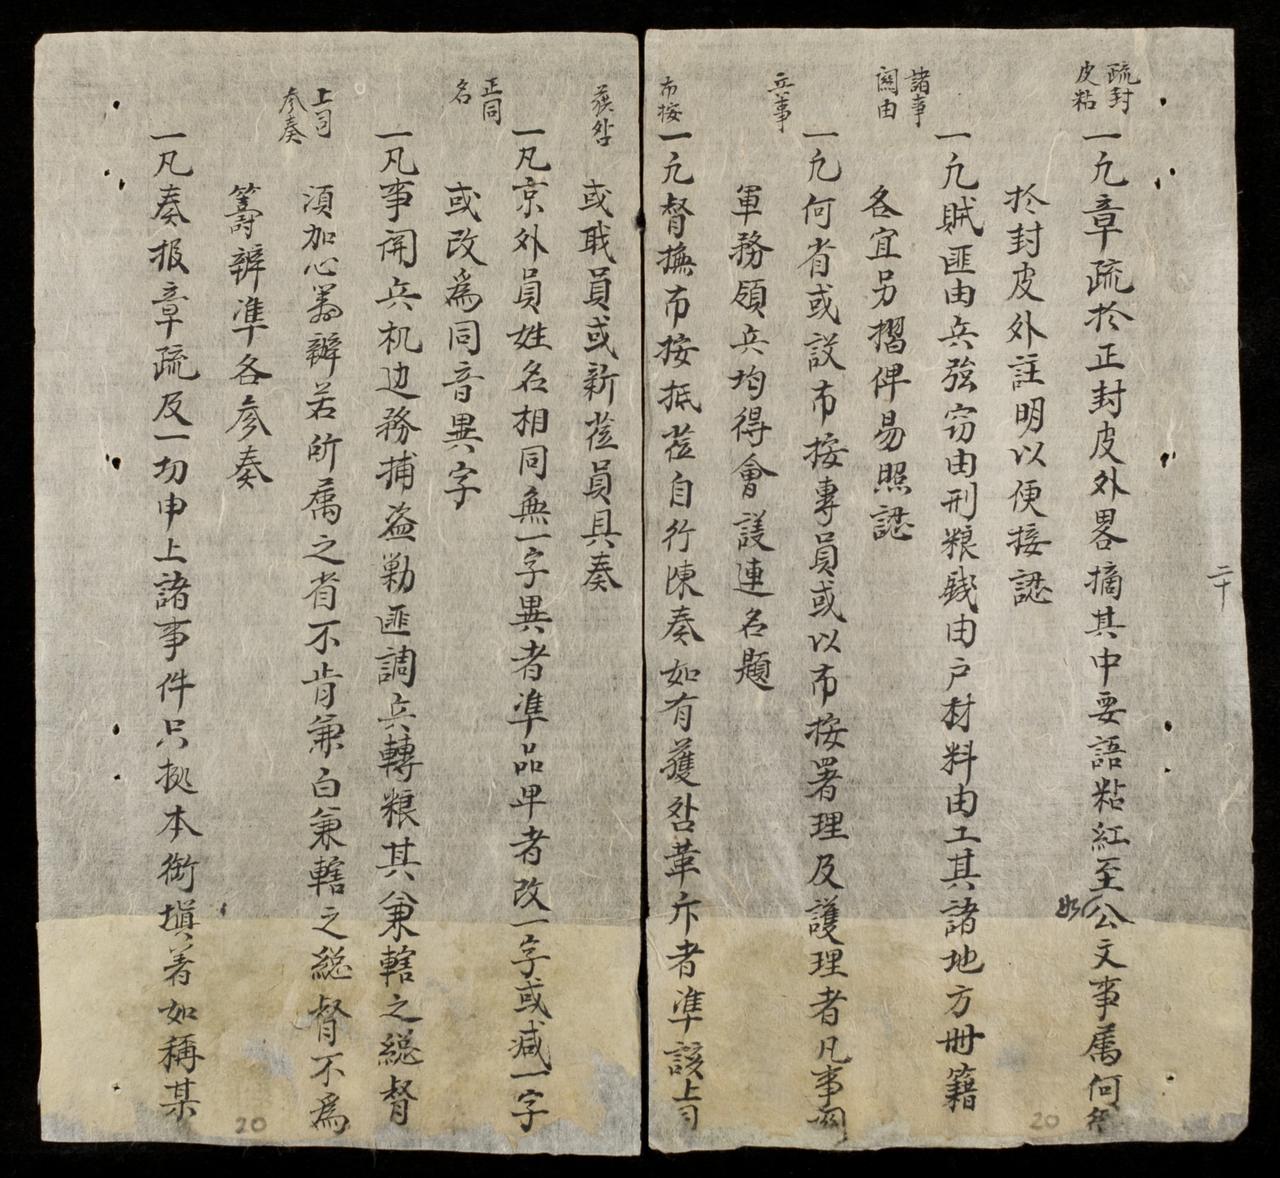 疏封
皮粘
一凢章疏於正封皮外畧摘其中要語粘紅至如公文事属何
於封皮外註明以便接認
諸事
闗由
一凢賊匪由兵強窃由刑粮錢由户材料由工其諸地方冊籍
各宜另摺俾易照認
兵事
一凢何省或設布按專員或以布按署理及護理者凡事関
軍務領兵均得會議連名題
布按
一凢督撫布按抵莅自行陳奏如有獲咎革斥者準該上司
獲咎
或戢員或新莅員具奏
正同
名
一凡京外員姓名相同無一字異者準品卑者改一字或减一字
或改爲同音異字
一凡事開兵机边務捕盗勦匪調兵轉粮其兼轄之総督
上司
参奏
須加心籌辦若所属之省不肯兼白兼轄之総督不為
籌辦準各参奏
一凡奏报章疏及一切申上諸事件只挑本衔填著如稱某
二十
20
20